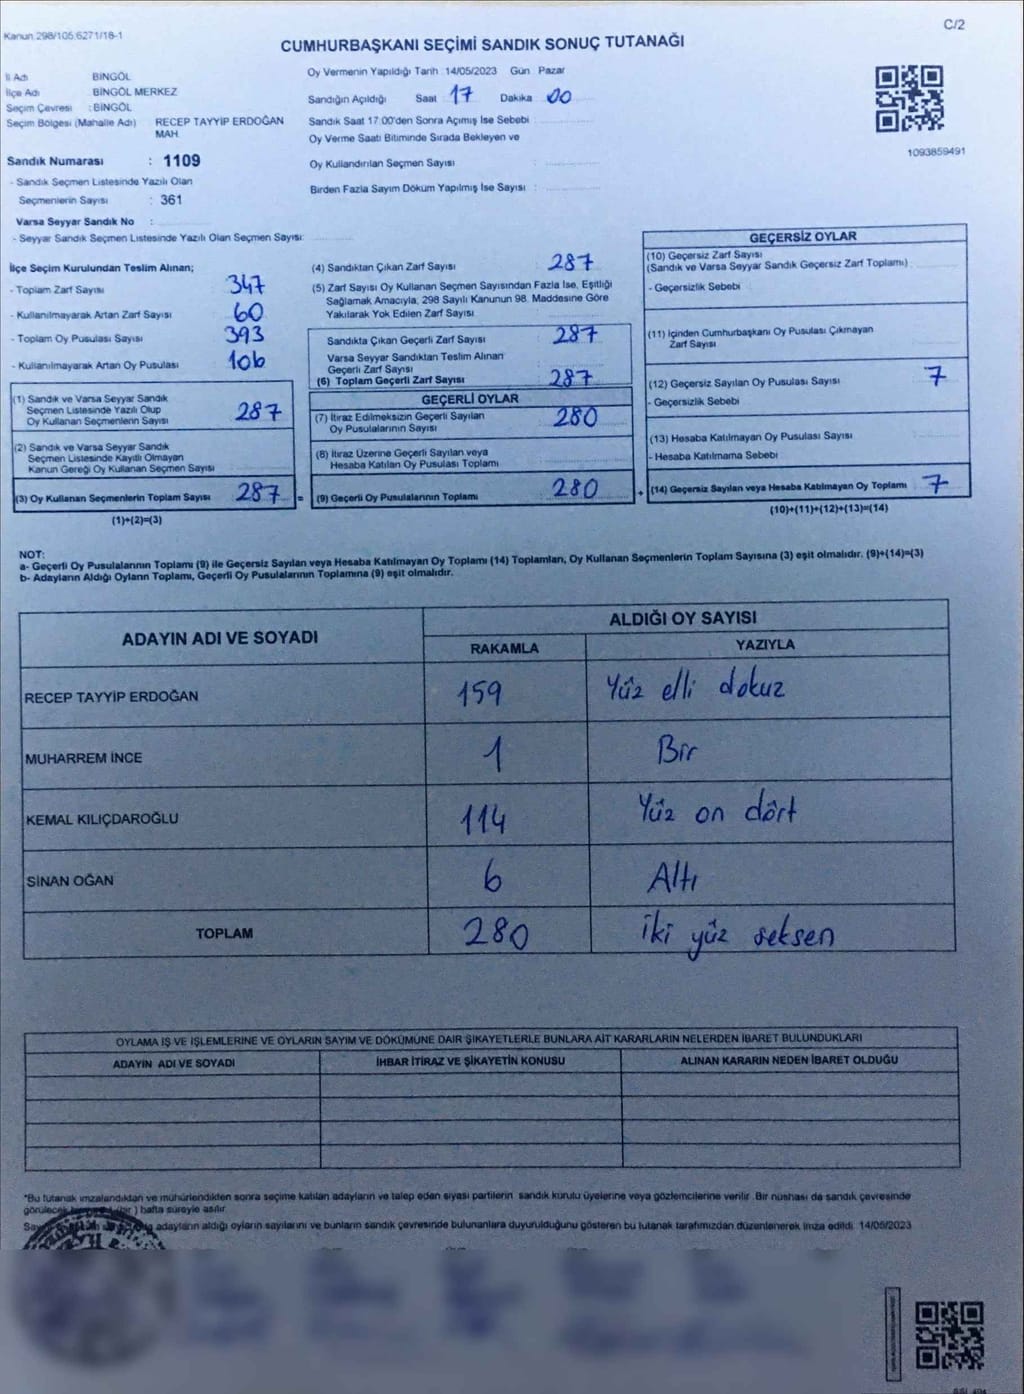 Kanun 298/105,6271/18-1
C/2
CUMHURBAŞKANI SEÇİMİ SANDIK SONUÇ TUTANAĞI
İl Adı BİNGÖL
İlçe Adı BİNGÖL MERKEZ
Seçim Çevresi : BİNGÖL
Seçim Bölgesi (Mahalle Adı) RECEP TAYYİP ERDOĞAN
MAH.
Sandık Numarası : 1109
- Sandık Seçmen Listesinde Yazılı Olan
Seçmenlerin Sayısı : 361
Varsa Seyyar Sandık No :
- Seyyar Sandık Seçmen Listesinde Yazılı Olan Seçmen Sayısı:
Oy Vermenin Yapıldığı Tarih :14/05/2023 Gün Pazar
Sandığın Açıldığı Saat 17 Dakika 00
Sandık Saat 17:00'den Sonra Açımış İse Sebebi :
Oy Verme Saati Bitiminde Sırada Bekleyen ve
Oy Kullandırılan Seçmen Sayısı :
Birden Fazla Sayım Döküm Yapılmış İse Sayısı :
1093859491
İlçe Seçim Kurulundan Teslim Alınan;
- Toplam Zarf Sayısı 347
- Kullanılmayarak Artan Zarf Sayısı 60
- Toplam Oy Pusulası Sayısı 393
- Kullanılmayarak Artan Oy Pusulası 106
(1) Sandık ve Varsa Seyyar Sandık
Seçmen Listesinde Yazılı Olup
Oy Kullanan Seçmenlerin Sayısı 287
(2) Sandık ve Varsa Seyyar Sandık
Seçmen Listesinde Kayıtlı Olmayan
Kanun Gereği Oy Kullanan Seçmen Sayısı
(3) Oy Kullanan Seçmenlerin Toplam Sayısı 287 =
(1)+(2)=(3)
(4) Sandıktan Çıkan Zarf Sayısı 287
(5) Zarf Sayısı Oy Kullanan Seçmen Sayısından Fazla İse, Eşitliği
Sağlamak Amacıyla, 298 Sayılı Kanunun 98. Maddesine Göre
Yakılarak Yok Edilen Zarf Sayısı
Sandıkta Çıkan Geçerli Zarf Sayısı 287
Varsa Seyyar Sandıktan Teslim Alınan
Geçerli Zarf Sayısı
(6) Toplam Geçerli Zarf Sayısı 287
GEÇERLİ OYLAR
(7) İtiraz Edilmeksizin Geçerli Sayılan
Oy Pusulalarının Sayısı 280
(8) İtiraz Üzerine Geçerli Sayılan veya
Hesaba Katılan Oy Pusulası Toplamı
(9) Geçerli Oy Pusulalarının Toplamı 280 +
GEÇERSİZ OYLAR
(10) Geçersiz Zarf Sayısı
(Sandık ve Varsa Seyyar Sandık Geçersiz Zarf Toplamı)
- Geçersizlik Sebebi
(11) İçinden Cumhurbaşkanı Oy Pusulası Çıkmayan
Zarf Sayısı
(12) Geçersiz Sayılan Oy Pusulası Sayısı 7
- Geçersizlik Sebebi
(13) Hesaba Katılmayan Oy Pusulası Sayısı
- Hesaba Katılmama Sebebi
(14) Geçersiz Sayılan veya Hesaba Katılmayan Oy Toplamı 7
(10)+(11)+(12)+(13)=(14)
NOT:
a- Geçerli Oy Pusulalarının Toplamı (9) ile Geçersiz Sayılan veya Hesaba Katılmayan Oy Toplamı (14) Toplamları, Oy Kullanan Seçmenlerin Toplam Sayısına (3) eşit olmalıdır. (9)+(14)=(3)
b- Adayların Aldığı Oyların Toplamı, Geçerli Oy Pusulalarının Toplamına (9) eşit olmalıdır.
ADAYIN ADI VE SOYADI ALDIĞI OY SAYISI
RAKAMLA YAZIYLA
RECEP TAYYİP ERDOĞAN 159 Yüz elli dokuz
MUHARREM İNCE 1 Bir
KEMAL KILIÇDAROĞLU 114 Yüz on dört
SİNAN OĞAN 6 Altı
TOPLAM 280 iki yüz seksen
OYLAMA İŞ VE İŞLEMLERİNE VE OYLARIN SAYIM VE DÖKÜMÜNE DAİR ŞİKAYETLERLE BUNLARA AİT KARARLARIN NELERDEN İBARET BULUNDUKLARI
ADAYIN ADI VE SOYADI İHBAR İTİRAZ VE ŞİKAYETİN KONUSU ALINAN KARARIN NEDEN İBARET OLDUĞU
*Bu tutanak imzalandıktan ve mühürlendikten sonra seçime katılan adayların ve talep eden siyasi partilerin sandık kurulu üyelerine veya gözlemcilerine verilir. Bir nüshası da sandık çevresinde
görülecek (bir) hafta süreyle asılır.
adayların aldığı oyların sayılarını ve bunların sandık çevresinde bulunanlara duyurulduğunu gösteren bu tutanak tarafımızdan düzenlenerek imza edildi. 14/05/2023